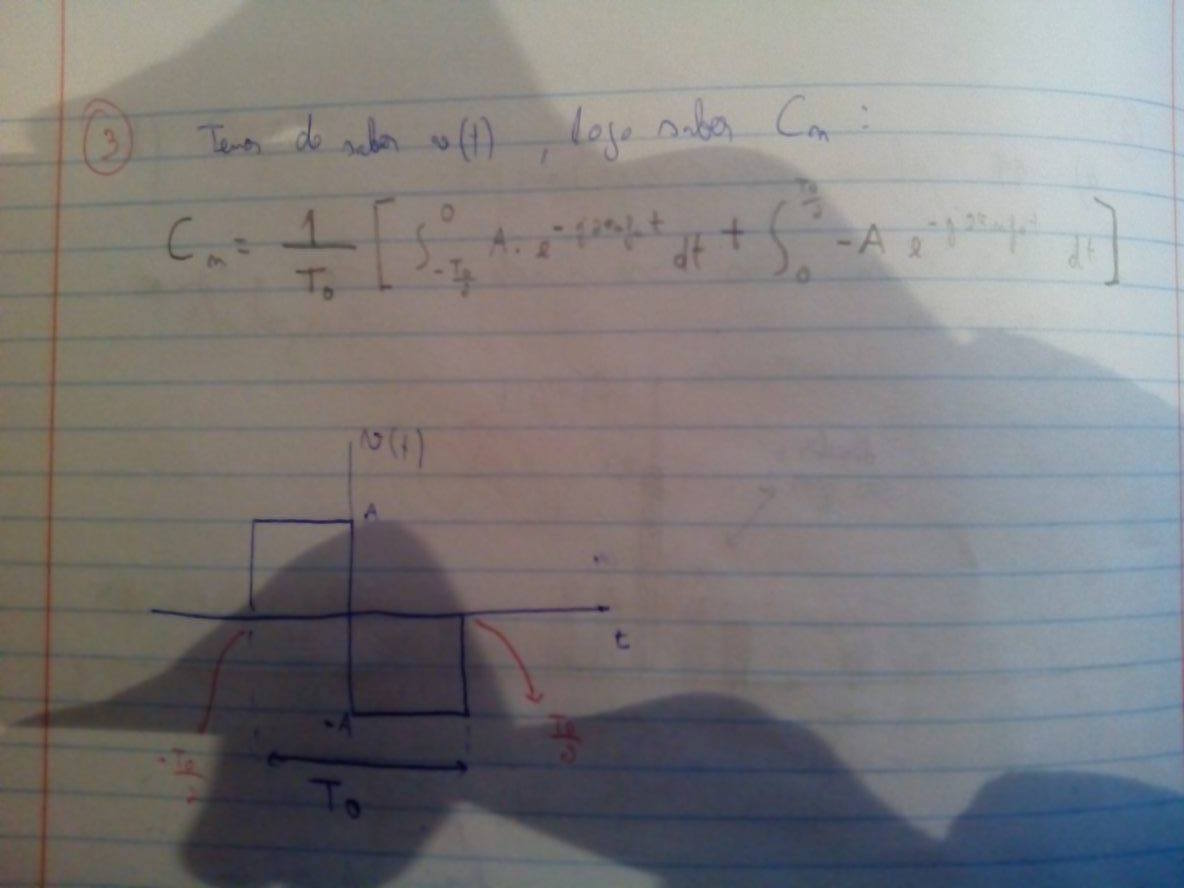 3 Temos de saber v(t), logo saber Cn :
Cn = 1/T₀ [ ∫_{-T₀/2}^{0} A. e^{-j2πnf₀t} dt + ∫_{0}^{T₀/2} -A e^{-j2πnf₀t} dt ]
v(t)
A
t
-A
-T₀/2
T₀/2
T₀